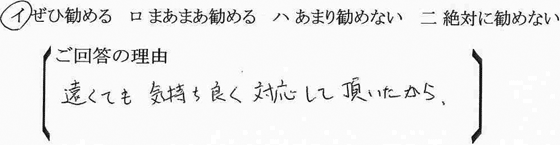 イ ぜひ勧める ロ まあまあ勧める ハ あまり勧めない ニ 絶対に勧めない
ご回答の理由
遠くても 気持ち良く 対応して 頂いたから、